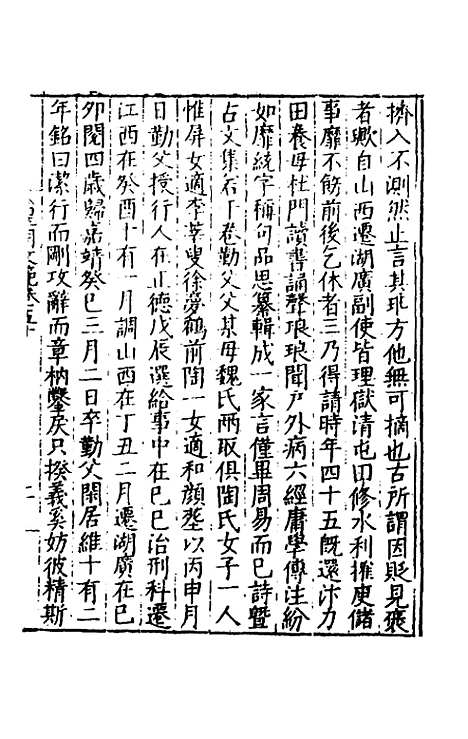 擠人不測然止言其耿方他無可摘也古所謂因貶見褒
者歟自山西遷湖廣副使皆理獄清屯田修水利搉吏儲
事靡不飭前後乞休者三乃得請時年四十五既還汴力
田養母杜門讀書誦聲琅琅聞戶外病六經庸學傳注紛
如靡統字稱句品思纂輯成一家言僅畢周易而已詩暨
古文集若干卷勤父父某母魏氏兩取俱陶氏女子一人
惟屏女適李莘叟徐夢鶴前陶一女適和顏塟以丙申月
日勤父授行人在正德戊辰選給事中在己巳治刑科遷
江西在癸酉十有一月調山西在丁丑二月遷湖廣在己
卯閱四歲歸嘉靖癸巳三月二日卒勤父閑居維十有二
年銘曰潔行而剛攻辭而章枘鑿戾只撥義奚妨彼精斯
皇明文範卷五十